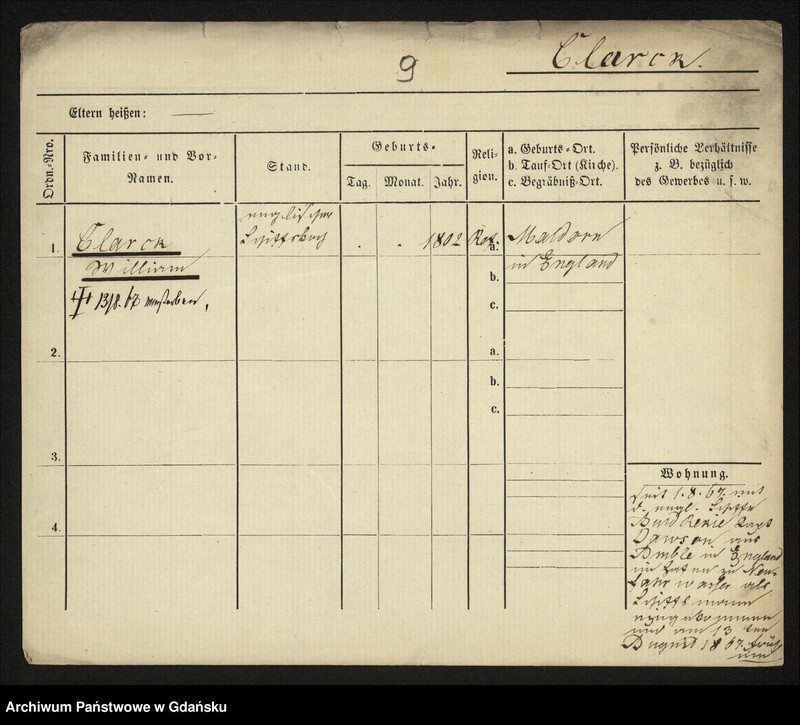 9
Clarck.
Eltern heißen: —
Ordn.-Nro.
Familien- und Vor-
Namen.
Stand.
Geburts-
Tag. Monat. Jahr.
Reli-
gion.
a. Geburts-Ort.
b. Tauf-Ort (Kirche).
c. Begräbniß-Ort.
Persönliche Verhältnisse
z. B. bezüglich
des Gewerbes u. s. w.
1.
Clarck
William
englischer
Schiffskoch
1802
a. Maldorn
in England
b.
c.
13/8. 67 verstorben.
2.
a.
b.
c.
3.
4.
Wohnung.
seit 1. 8. 67. mit
d. engl. Schiffe
Capt
Dawson aus
Amble in England
im Hafen zu Neu-
fahrwasser als
Schiffsmann
angekommen
und am 13 ten
August 1867. früh
Archiwum Państwowe w Gdańsku